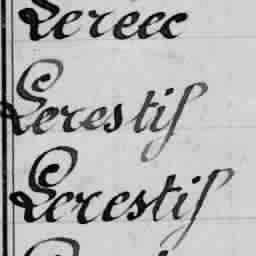 Lereec
Lerestif
Lerestif